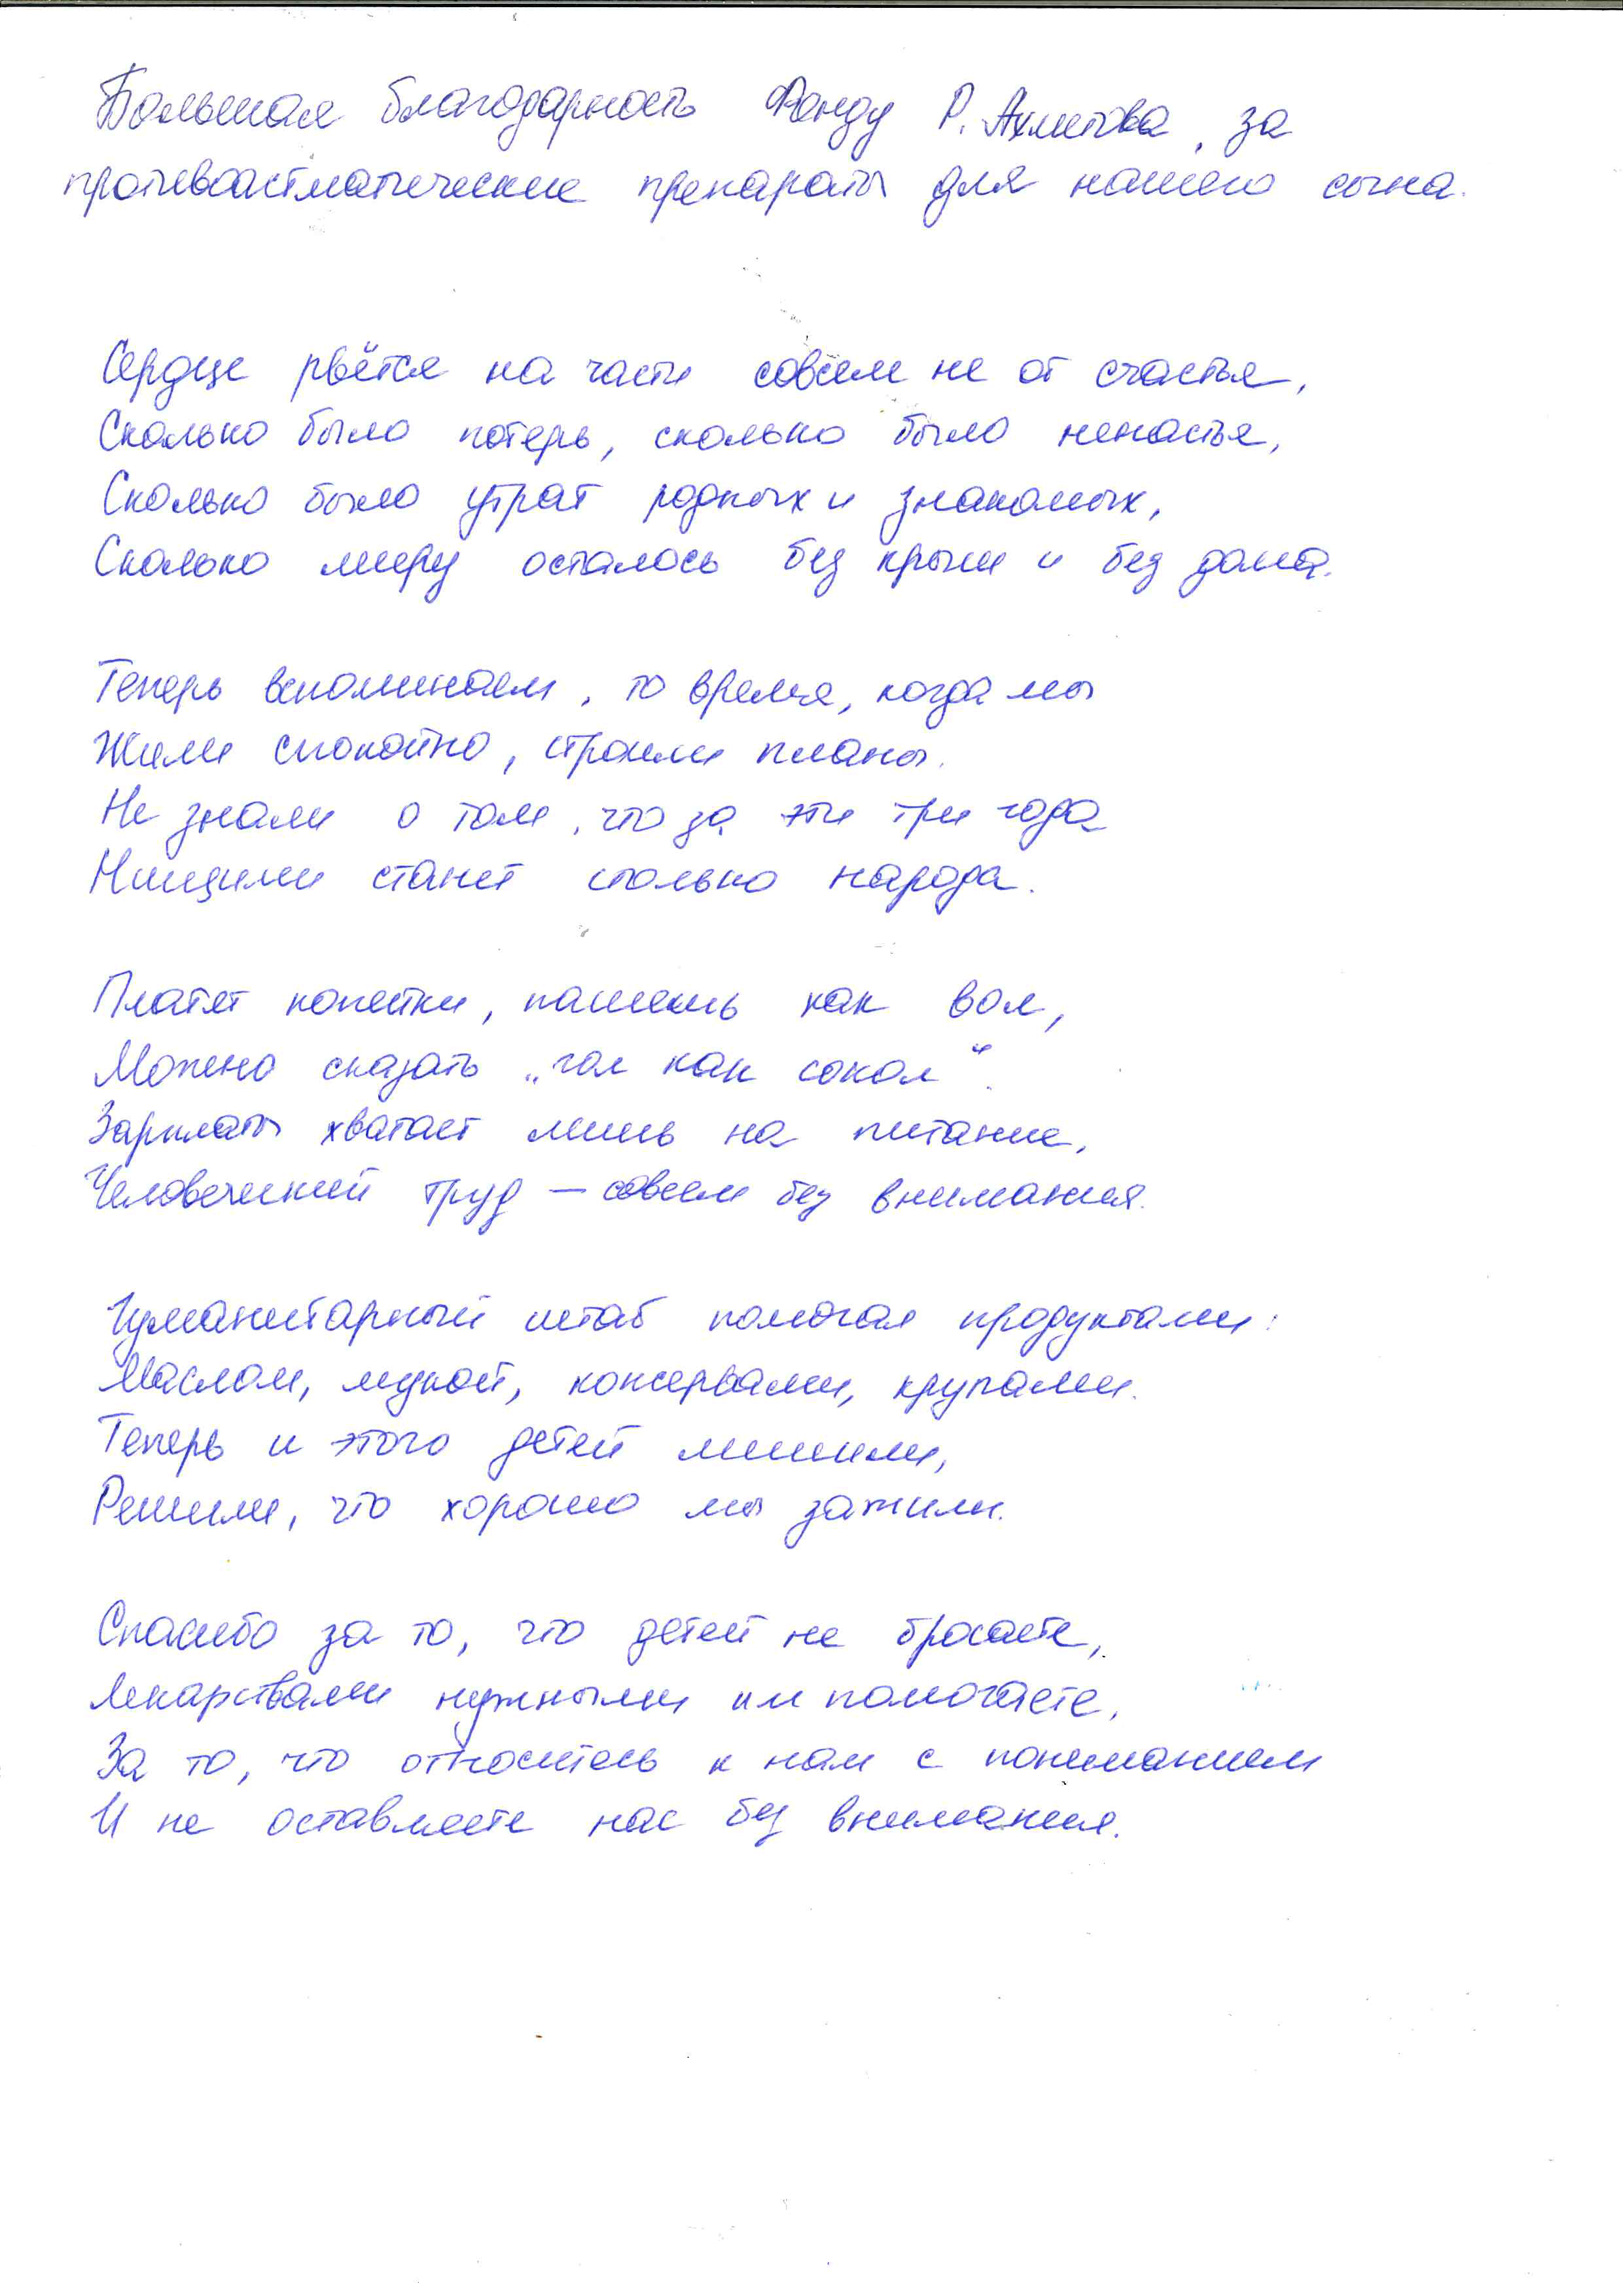 Большая благодарность Фонду Р. Ахметова, за
противоастматические препараты для нашего сына.
Сердце рвётся на части совсем не от счастья,
Сколько было потерь, сколько было ненастья,
Сколько было утрат родных и знакомых,
Сколько миру осталось без крыши и без дома.
Теперь вспоминаем, то время, когда мы
Жили спокойно, строили планы.
Не знали о том, что за эти три года
Нищими станет столько народа.
Платят копейки, пашешь как вол,
Можно сказать „гол как сокол“.
Зарплаты хватает лишь на питание,
Человеческий труд – совсем без внимания.
Гуманитарный штаб помогал продуктами:
Маслом, мукой, консервами, крупами.
Теперь и этого детей лишили,
Решили, что хорошо мы зажили.
Спасибо за то, что детей не бросаете,
Лекарствами нужными им помогаете,
За то, что относитесь к нам с пониманием
И не оставляете нас без внимания.